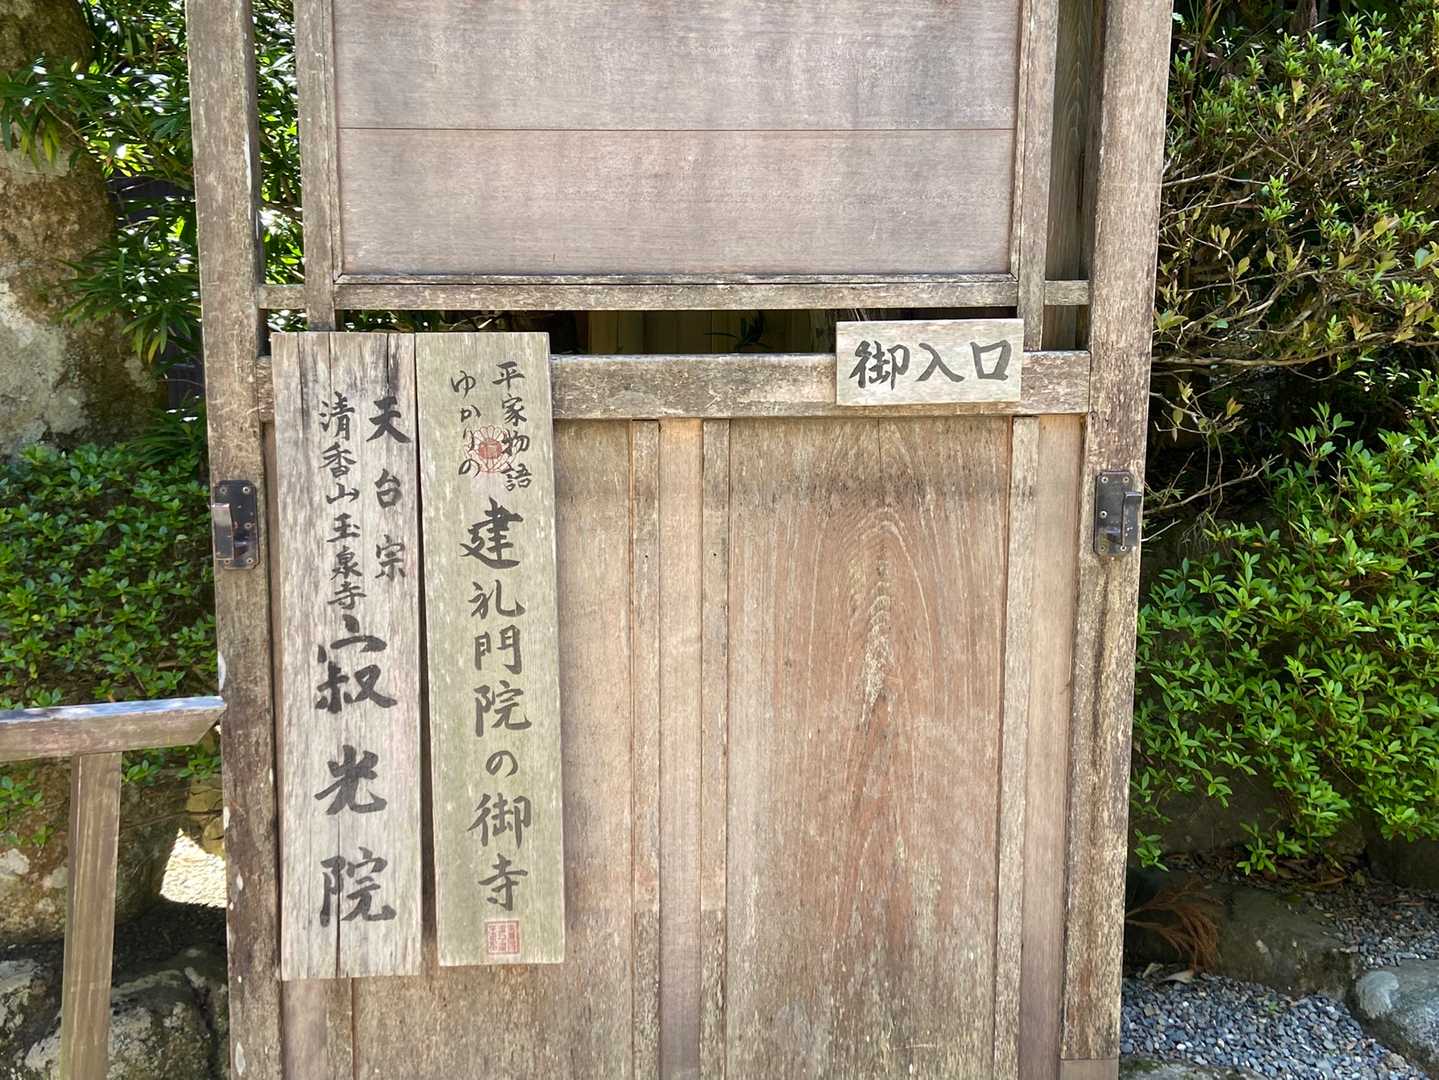 御入口
平家物語
ゆかりの
建礼門院の御寺
天台宗
清香山玉泉寺
寂光院